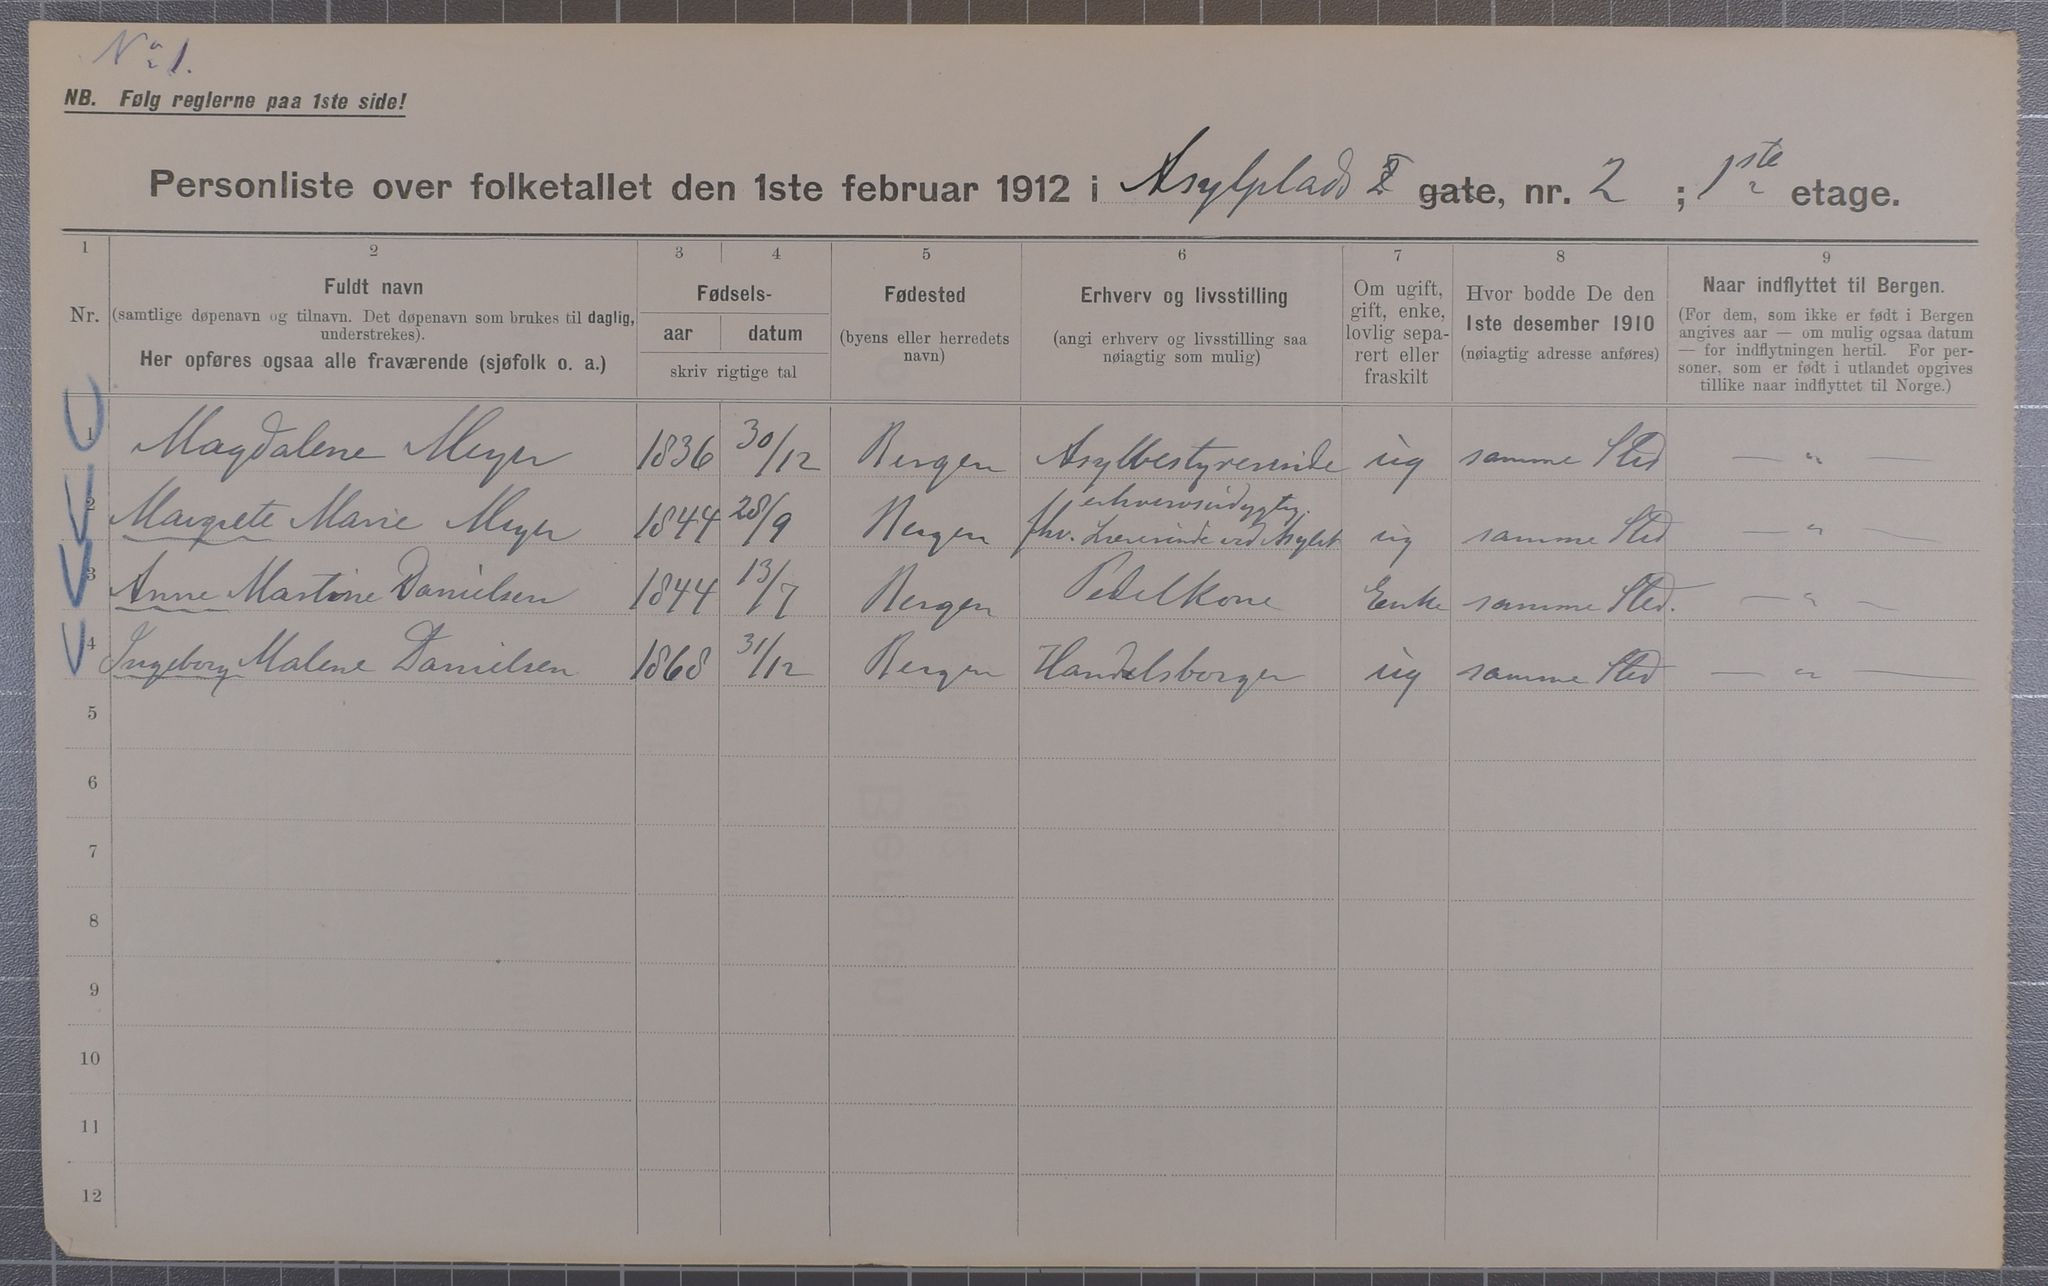 No 1.
NB. Følg reglerne paa 1ste side!
Personliste over folketallet den 1ste februar 1912 i Asylplads gate, nr. 2 ; 1ste etage.
1 2 3 4 5 6 7 8 9
Nr.
Fuldt navn
(samtlige døpenavn og tilnavn. Det døpenavn som brukes til daglig,
understrekes).
Her opføres ogsaa alle fraværende (sjøfolk o. a.)
Fødsels-
aar datum
skriv rigtige tal
Fødested
(byens eller herredets
navn)
Erhverv og livsstilling
(angi erhverv og livsstilling saa
nøiagtig som mulig)
Om ugift,
gift, enke,
lovlig sepa-
rert eller
fraskilt
Hvor bodde De den
1ste desember 1910
(nøiagtig adresse anføres)
Naar indflyttet til Bergen.
(For dem, som ikke er født i Bergen
angives aar — om mulig ogsaa datum
— for indflytningen hertil. For per-
soner, som er født i utlandet opgives
tillike naar indflyttet til Norge.)
1 Magdalene Meyer 1836 30/12 Bergen Asylbestyrerinde ug samme Sted — " —
erhvervsudygtig.
2 Margrete Marie Meyer 1844 28/9 Bergen fhv. Lærerinde ved Asylet ug samme Sted — " —
3 Anne Martine Danielsen 1844 13/7 Bergen Pedelkone Enke samme Sted. — " —
4 Ingeborg Malene Danielsen 1868 31/12 Bergen Handelsborger ug samme Sted — " —
5
6
7
8
9
10
11
12